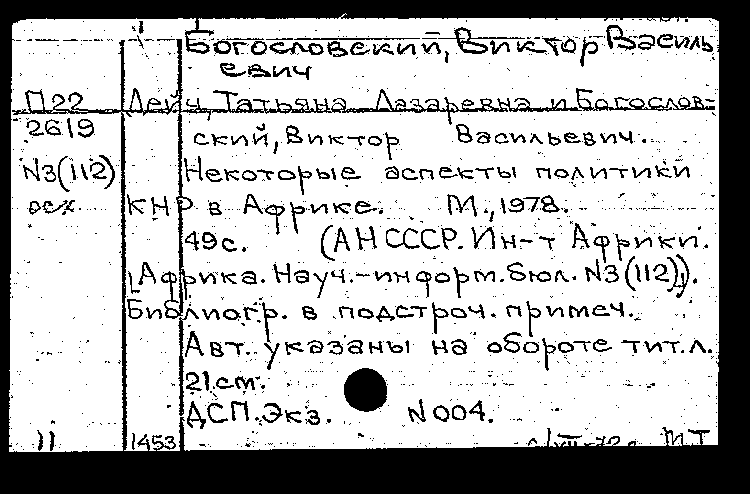 Богословский, Виктор Василь
евич
П22 Дейч, Татьяна Лазаревна и Богослов-
2619 ский, Виктор Васильевич.
N3(112) Некоторые аспекты политики
осх КНР в Африке. М., 1978.
49с. (АН СССР. Ин-т Африки.
Африка. Науч.-информ. бюл. N3(112)).
Библиогр. в подстроч. примеч.
Авт. указаны на обороте тит. л.
21см.
ДСП. Экз. N004.
11 1453 МТ